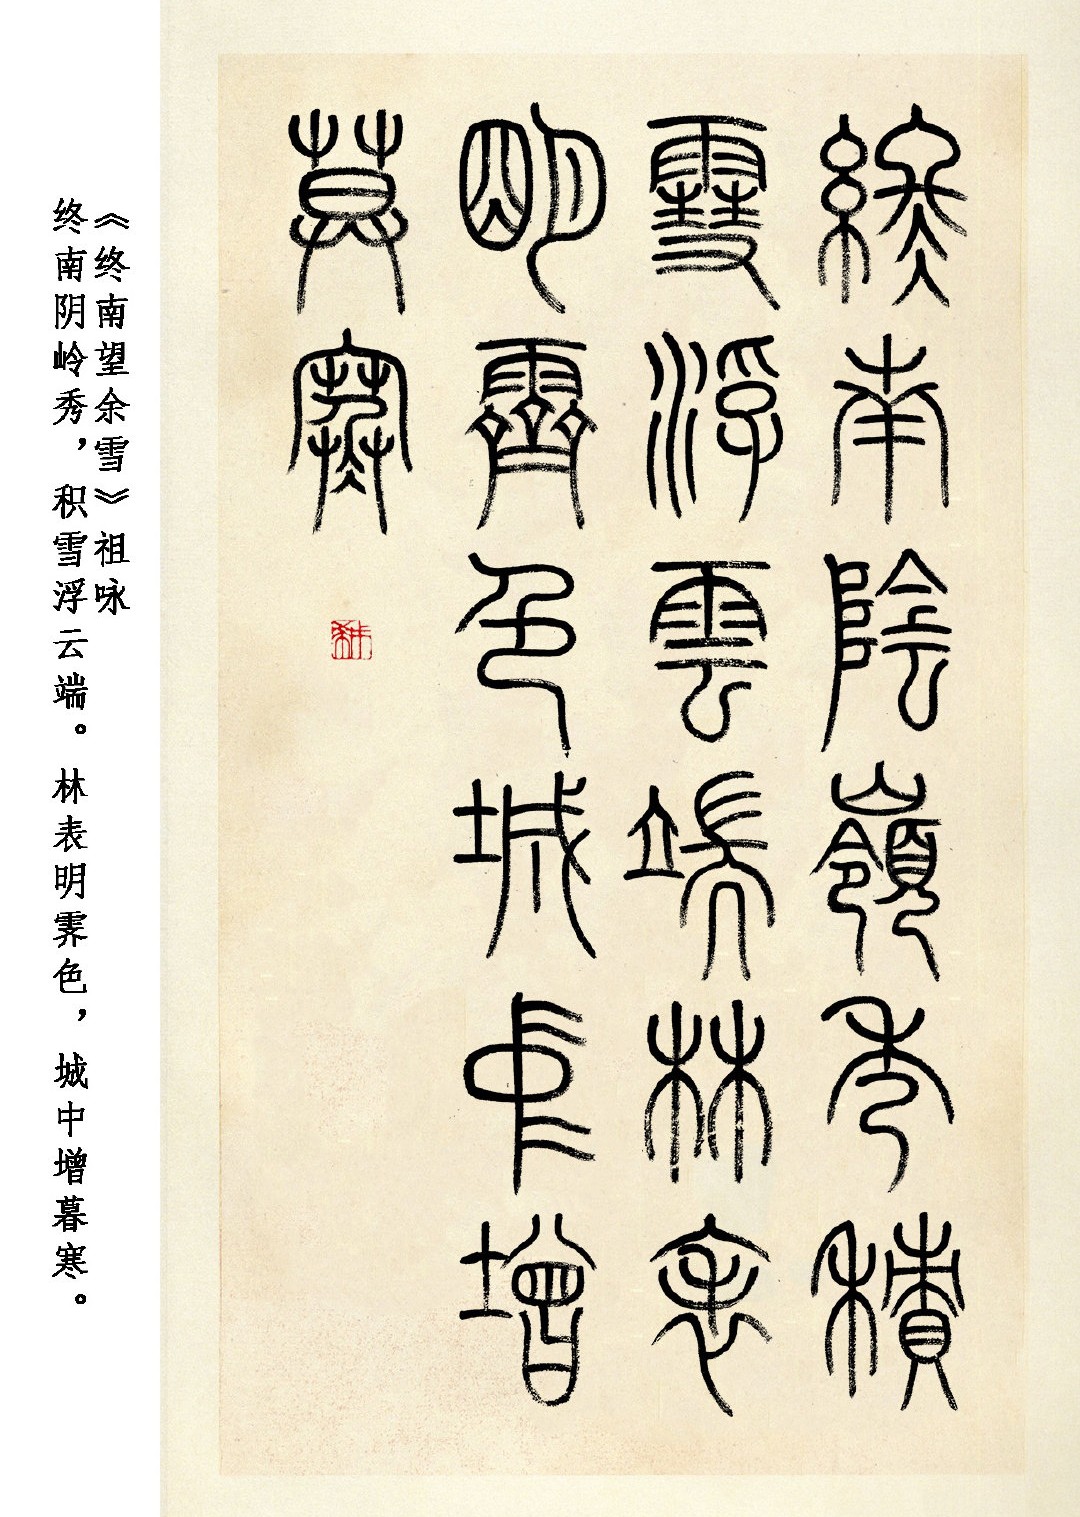 終南陰嶺秀積
雪浮雲端林表
朙霽色城中增
莫寒
《终南望余雪》祖咏
终南阴岭秀，积雪浮云端。林表明霁色，城中增暮寒。